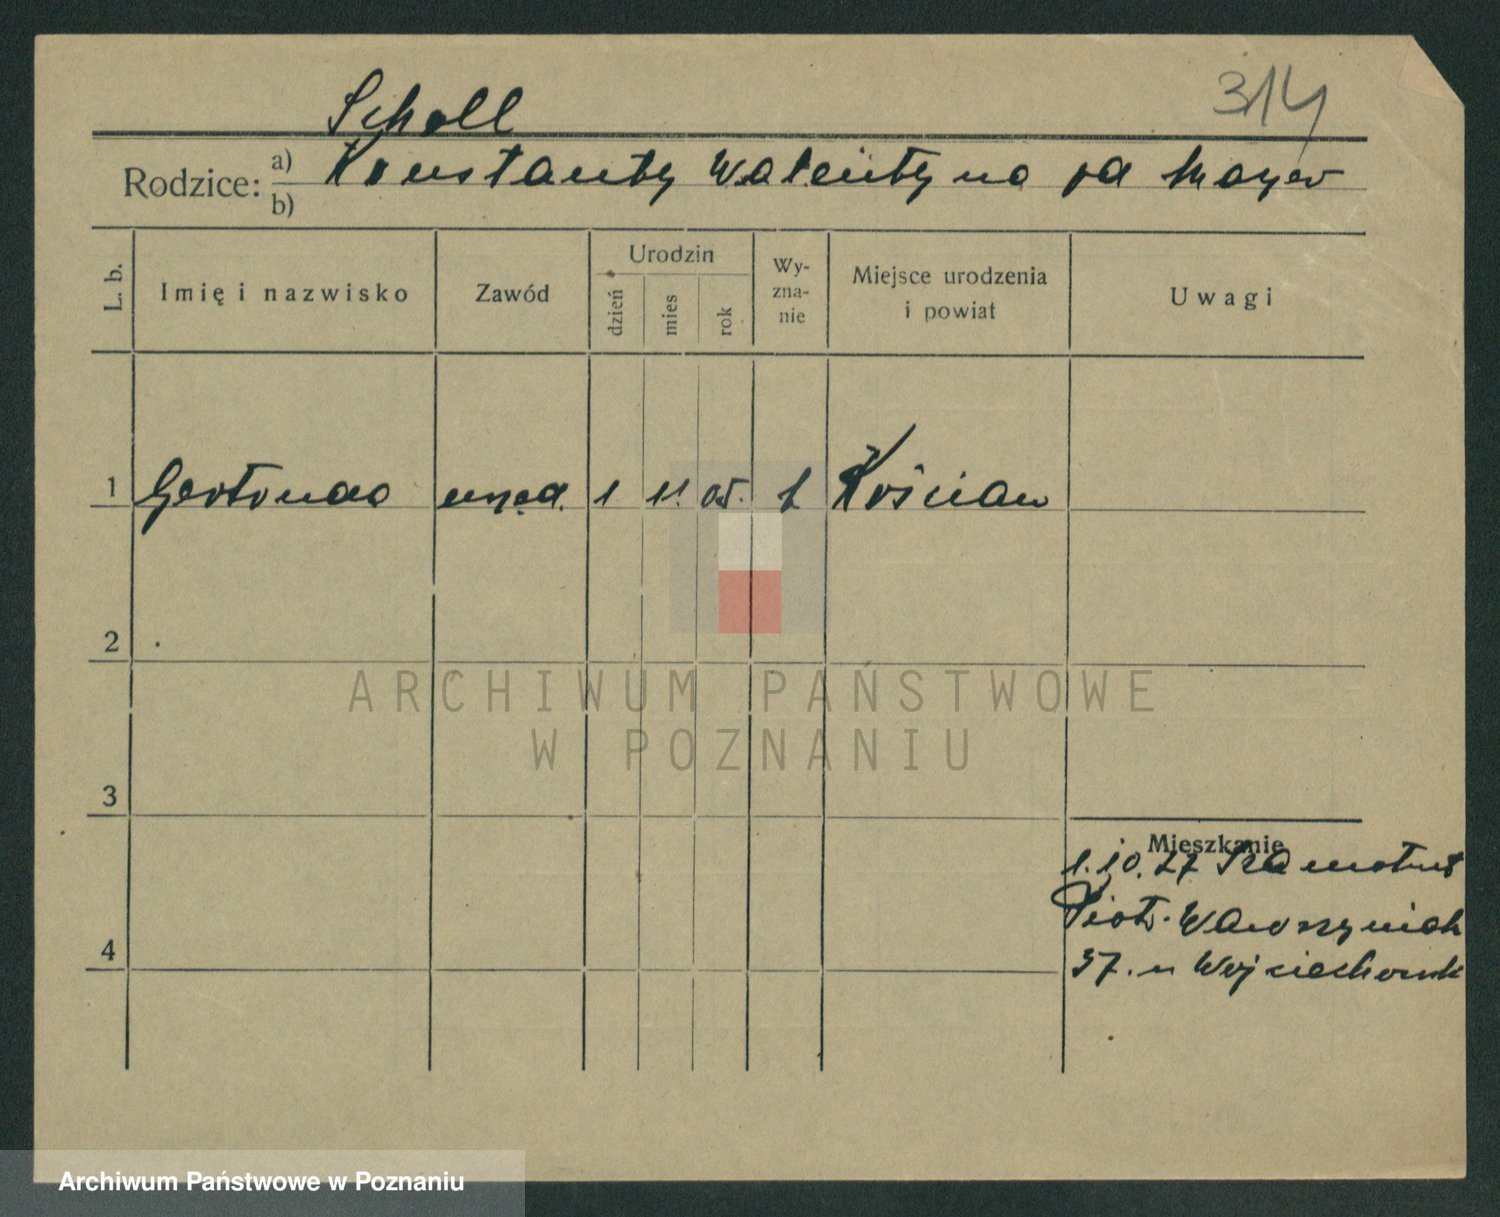 314
Scholl
Rodzice: a) b) Konstanty Walentyna Mayer
L. b. Imię i nazwisko Zawód Urodzin dzień mies rok Wy-zna-nie Miejsce urodzenia i powiat Uwagi
1 urzęd. 1 11. 05. Kościan
2
3
Mieszkanie
1.10.27
Piotr Wawrzyniak
4
37. u Wojciechowsk
ARCHIWUM PAŃSTWOWE
W POZNANIU
Archiwum Państwowe w Poznaniu